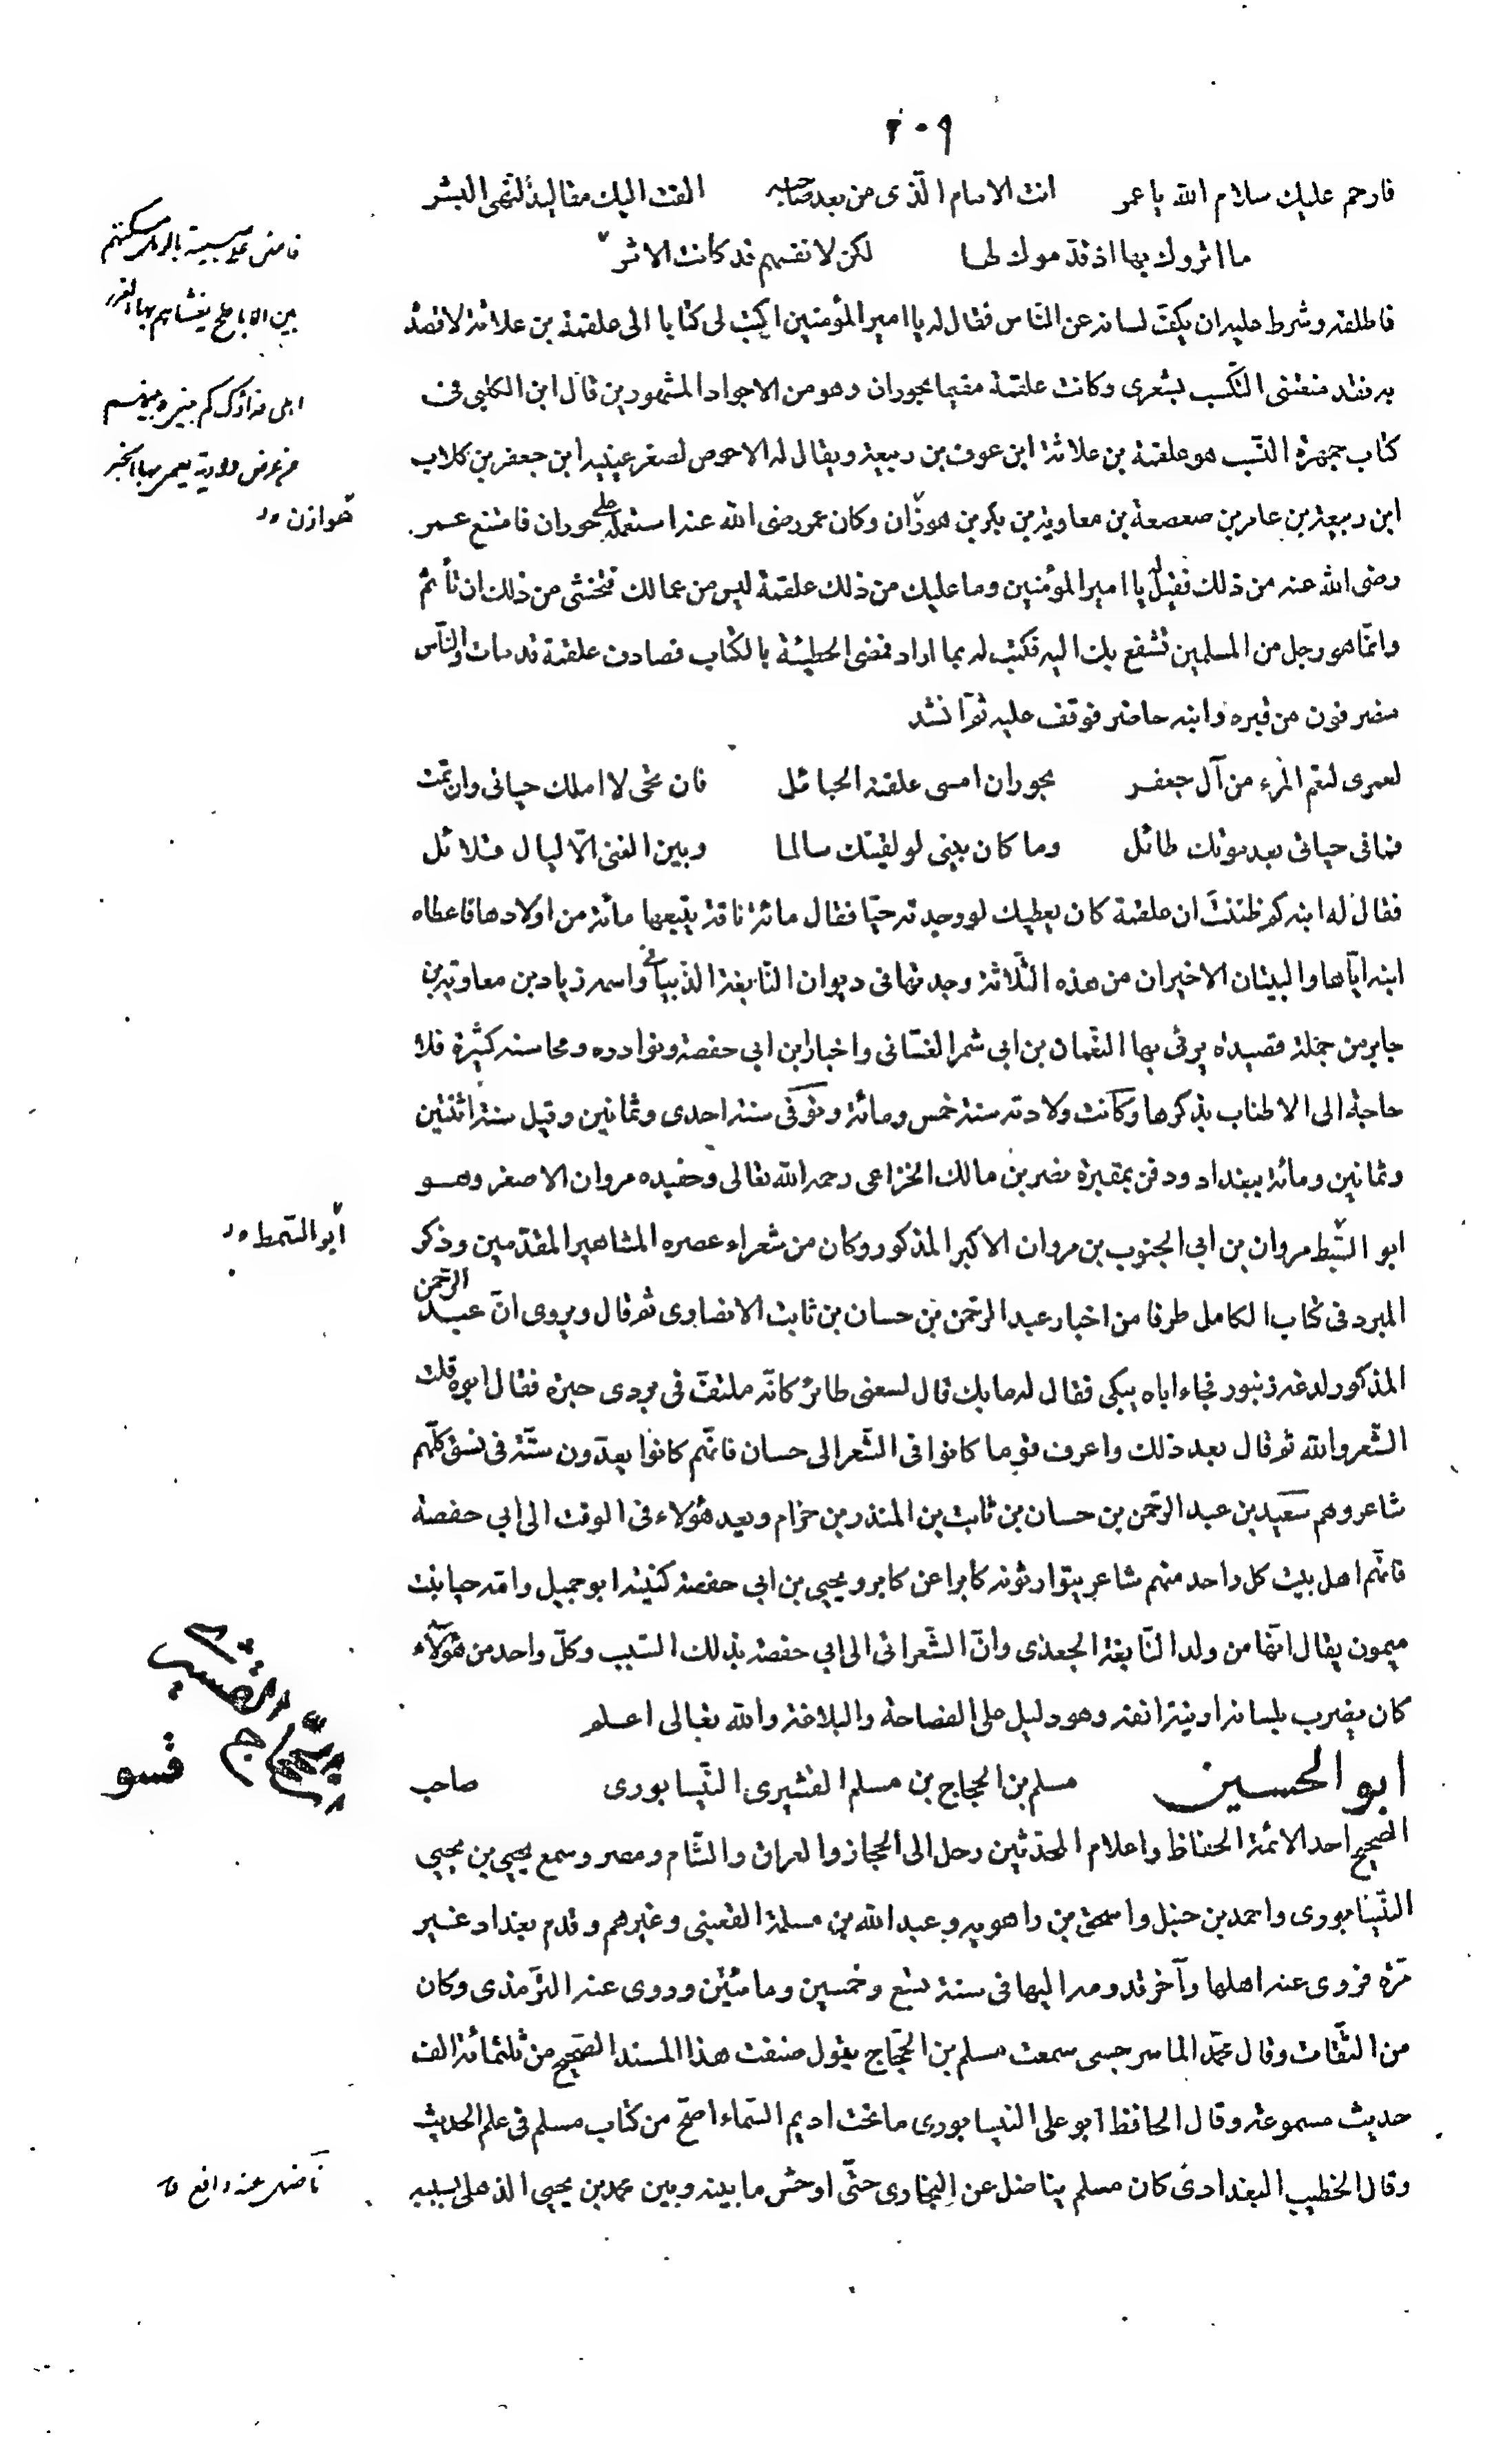 ٢٠٩
فارحم عليك سلام الله يا عمر انت الامام الّذى من بعد صاحبه القت اليك مقاليد النّهى البشر
ما اثروك بها اذ قدّموك لها لكن لانفسهم قد كانت الاثر
فاطلقه وشرط عليه ان يكفّ لسانه عن النّاس فقال له يا امير المؤمنين اكتب لى كتابا الى علقمة بن علاثة لاقصد
به فقد منعتنى التّكسب بشعرى وكانت علقمة مقيما بحوران وهو من الاجواد المشهورين قال ابن الكلبى فى
كتاب جمهرة النّسب هو علقمة بن علاثة ابن عوف بن ربيعة ويقال له الاحوص لصغر عينيه ابن جعفر بن كلاب
ابن ربيعة بن عامر بن صعصعة بن معاوية بن بكر بن هوذان وكان عمر رضى الله عنه استعمله على حوران فامتنع عمر
رضى الله عنه من ذلك فقيل له يا امير المؤمنين وما عليك من ذلك علقمة ليس من عمالك فتخشى من ذلك ان تأثم
وانّما هو رجل من المسلمين تشفع بك اليه فكتب له بما اراد فمضى الحطيئة بالكتاب فصادف علقمة قد مات والنّاس
منصرفون من قبره وابنه حاضر فوقف عليه ثمّ انشد
لعمرى لنعم المرء من آل جعفر بحوران امسى علقته الحبائل فان تحى لا املك حياتى وان تمت
فما فى حياتى بعد موتك طائل وما كان بينى لو لقيتك سالما وبين الغنى الّا ليال قلائل
فقال له ابنه كم ظننت ان علقمة كان يعطيك لو وجدته حيّا فقال مائة ناقة يتّبعها مائة من اولادها فاعطاه
ابنه ايّاها والبيتان الاخيران من هذه الثّلاثة وجدتها فى ديوان النّابغة الذبيانى واسمه زياد بن معاوية بن
جابر من جملة قصيدة يرثى بها النعمان بن ابى شمر الغسّانى واخبار ابن ابى حفصة ونوادره ومحاسنه كثيرة فلا
حاجة الى الاطناب بذكرها وكانت ولادته سنة خمس ومائة وتوفّى سنة احدى وثمانين وقيل سنة اثنتين
وثمانين ومائة ببغداد ودفن بمقبرة نصر بن مالك الخزاعى رحمه الله تعالى وحفيده مروان الاصغر وهو
ابو الشّبط مروان بن ابى الجنوب بن مروان الاكبر المذكور وكان من شعراء عصره المشاهير المقدّمين وذكر
المبرد فى كتاب الكامل طرفا من اخبار عبد الرّحمن بن حسان بن ثابت الانصارى ثم قال ويروى انّ عبد الرّحمن
المذكور لدغه زنبور فجاء اباه يبكى فقال له ما بك قال لسعنى طائر كانّه ملتفّ فى بردى حبرة فقال ابوه قلت
الشّعر والله ثم قال بعد ذلك واعرف قوما كانوا فى الشّعر الى حسان فانّهم كانوا يعدّون ستّة فى نسق كلّهم
شاعر وهم سعيد بن عبد الرّحمن بن حسان بن ثابت بن المنذر بن حزام وبعد هؤلاء فى الوقت الى ابى حفصة
فانّهم اهل بيت كل واحد منهم شاعر يتوارثونه كابرا عن كابر ويحيى بن ابى حفصة كنيته ابو جميل وامّه حيا بنت
ميمون يقال انّها من ولد النّابغة الجعدى وانّ الشّعر اتى الى ابى حفصة بذلك السّبب وكلّ واحد من هؤلاء
كان يضرب بلسانه ارنبة انفه وهو دليل على الفصاحة والبلاغة والله تعالى اعلم
ابو الحسين مسلم بن الحجاج بن مسلم القشيرى النّيسابورى صاحب
الصحيح احد الائمّة الحفاظ واعلام المحدّثين رحل الى الحجاز والعراق والشّام ومصر وسمع يحيى بن يحيى
النّيسابورى واحمد بن حنبل واسحق بن راهويه وعبد الله بن مسلمة القعنبى وغيرهم وقدم بغداد غير
مرّة فروى عنه اهلها وآخر قدومه اليها فى سنة تسع وخمسين ومائتين وروى عنه التّرمذى وكان
من الثّقات وقال محمّد الماسرجسى سمعت مسلم بن الحجّاج يقول صنفت هذا المسند الصّحيح من ثلثمائة الف
حديث مسموعة وقال الحافظ ابو على النيسابورى ما تحت اديم السّماء اصحّ من كتاب مسلم فى علم الحديث
وقال الخطيب البغدادى كان مسلم يناضل عن البخارى حتّى اوحش ما بينه وبين محمد بن يحيى الذهلى بسببه
فامنن على صبية بالرمل مسكنهم
بين الاباطح يغشاهم بها القرر
اهلى فداؤك كم بينى وبينهم
من عرض داوية يعمى بها الخبر
هوازن
أبو السّمط
مسلم بن الحجّاج القشيرى
قسو
ناضل عنه دافع